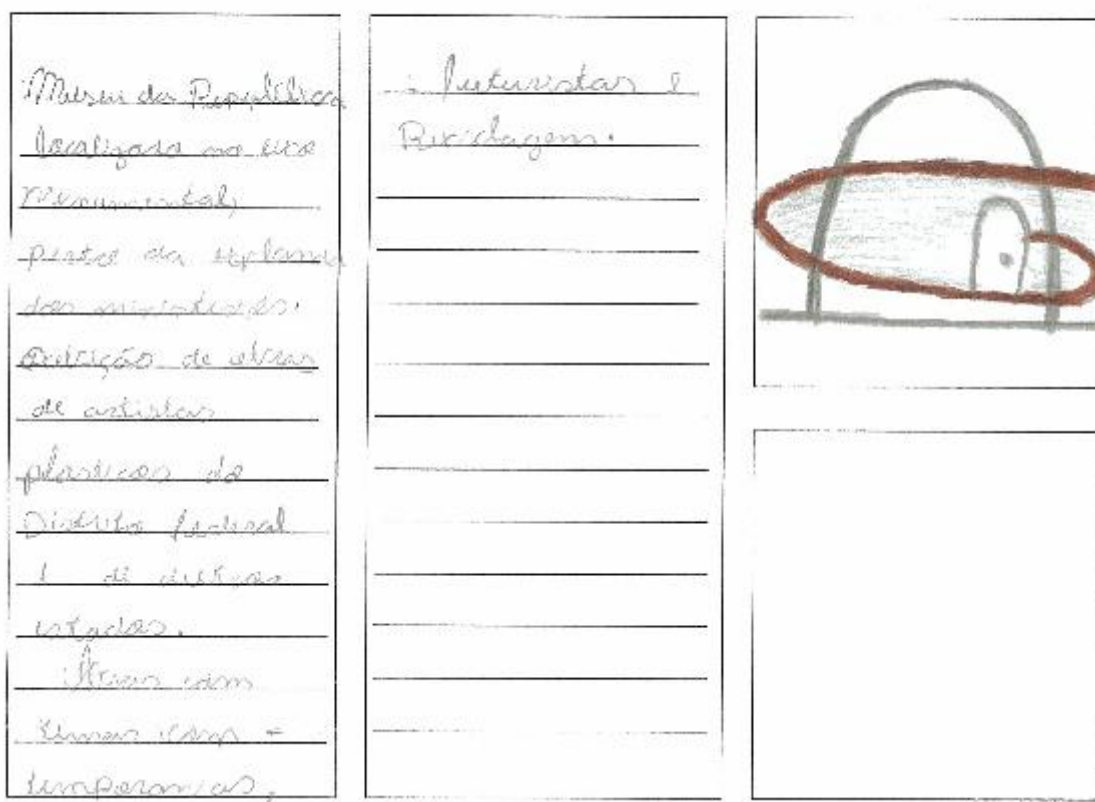 Museu da República
localizado no eixo
Monumental,
perto da esplana
dos ministérios.
de obras
de artistas
plásticos do
Distrito federal
e de outros
estados.
com
temas com -
temporanias,
: futuristas e
Reciclagem.